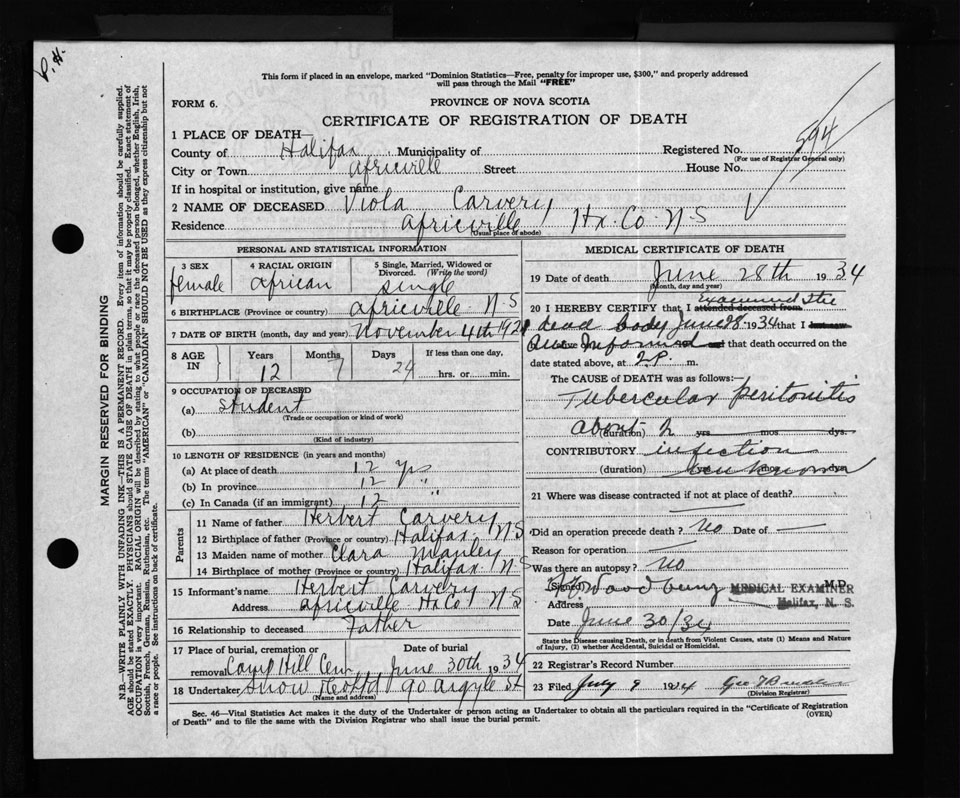 P.H.
This form if placed in an envelope, marked "Dominion Statistics—Free, penalty for improper use, $300," and properly addressed
will pass through the Mail "FREE"
FORM 6.
PROVINCE OF NOVA SCOTIA
CERTIFICATE OF REGISTRATION OF DEATH
594
1 PLACE OF DEATH—
County of Halifax Municipality of Registered No.
(For use of Registrar General only)
City or Town Africville Street House No.
If in hospital or institution, give name
2 NAME OF DECEASED Viola Carvery
Residence Africville Hx. Co. N.S
(Usual place of abode)
PERSONAL AND STATISTICAL INFORMATION
3 SEX
female
4 RACIAL ORIGIN
African
5 Single, Married, Widowed or
Divorced. (Write the word)
single
6 BIRTHPLACE (Province or country) Africville N.S
7 DATE OF BIRTH (month, day and year) November 4th 1921
8 AGE IN
Years 12
Months 7
Days 24
If less than one day,
hrs. or min.
9 OCCUPATION OF DECEASED
(a) Student
(Trade or occupation or kind of work)
(b)
(Kind of industry)
10 LENGTH OF RESIDENCE (in years and months)
(a) At place of death 12 yrs
(b) In province 12 "
(c) In Canada (if an immigrant) 12 "
Parents
11 Name of father Herbert Carvery
12 Birthplace of father (Province or country) Halifax NS
13 Maiden name of mother Clara Manley
14 Birthplace of mother (Province or country) Halifax N-S
15 Informant's name Herbert Carvery
Address Africville Hx Co N S
16 Relationship to deceased Father
17 Place of burial, cremation or Date of burial
removal Camp Hill Cem June 30th 1934
18 Undertaker Snow 90 Argyle St
(Name and address)
MEDICAL CERTIFICATE OF DEATH
19 Date of death June 28th 1934
(Month, day and year)
20 I HEREBY CERTIFY that I attended deceased from Examined the
dead body June 28. 1934 that I
Informed that death occurred on the
date stated above, at 2 P. m.
The CAUSE of DEATH was as follows:
Tubercular peritonitis
about 2
(duration) yrs mos dys.
CONTRIBUTORY infection
(duration) unknown yrs mos dys
21 Where was disease contracted if not at place of death?
Did an operation precede death? No Date of —
Reason for operation —
Was there an autopsy? No
(Signed) Woodbury M.D.
MEDICAL EXAMINER
Address Halifax, N. S.
Date June 30/34
State the Disease causing Death, or in death from Violent Causes, state (1) Means and Nature
of Injury, (2) whether Accidental, Suicidal or Homicidal.
22 Registrar's Record Number
23 Filed July 9 1934 Geo
(Division Registrar)
Sec. 46—Vital Statistics Act makes it the duty of the Undertaker or person acting as Undertaker to obtain all the particulars required in the "Certificate of Registration
of Death" and to file the same with the Division Registrar who shall issue the burial permit.
(OVER)
MARGIN RESERVED FOR BINDING
N.B.—WRITE PLAINLY WITH UNFADING INK—THIS IS A PERMANENT RECORD. Every item of information should be carefully supplied.
AGE should be stated EXACTLY. PHYSICIANS should STATE CAUSE OF DEATH in plain terms, so that it may be properly classified. Exact statement of
OCCUPATION is very important. RACIAL ORIGIN will be described by stating to what people or race the deceased person belonged, whether English, Irish,
Scottish, French, German, Russian, Ruthenian, etc. The terms "AMERICAN" or "CANADIAN" SHOULD NOT BE USED as they express citizenship but not
a race or people. See instructions on back of certificate.